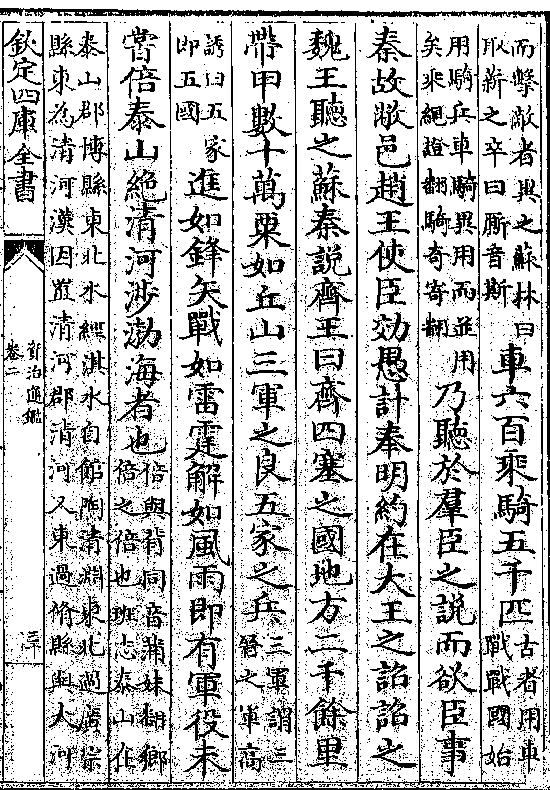 而擊敵者與之蘇林曰
取薪之卒曰厮音斯
車六百乘騎五千匹
古者用車
戰戰國始
用騎兵車騎異用而並用
矣乘繩證翻騎奇寄翻
乃聽於羣臣之說而欲臣事
秦故敝邑趙王使臣効愚計奉明約在大王之詔詔之
魏王聽之蘇秦說齊王曰齊四塞之國地方二千餘里
帶甲數十萬粟如丘山三軍之良五家之兵
三軍謂三
之軍高
誘曰五家
即五國
進如鋒矢戰如雷霆解如風雨即有軍役未
嘗倍泰山絶清河涉渤海者也
倍與背同音蒲妹翻鄉
倍之倍也班志泰山在
泰山郡博縣東北水經淇水自館陶清淵東北過廣宗
縣東為清河漢因置清河郡清河又東過脩縣與大河
欽定四庫全書
資治通鑑
卷二